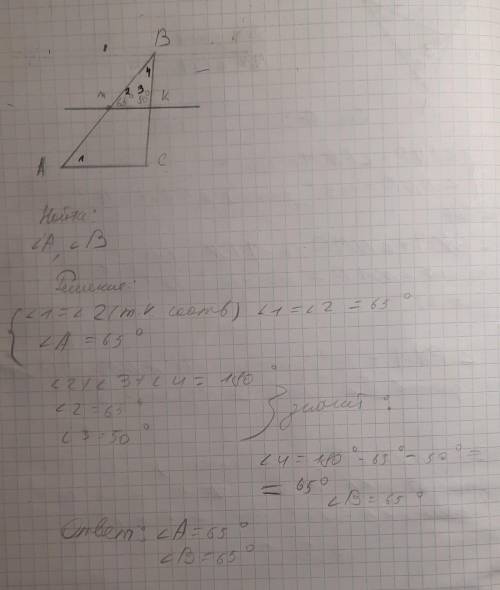 B
4
2 3
м 65° 50° K
A 1 C
Найти:
∠A, ∠B
Решение:
∠1 = ∠2 (т.к соотв) ∠1 = ∠2 = 65°
∠A = 65°
∠2 + ∠3 + ∠4 = 180°
∠2 = 65°
∠3 = 50°
значит:
∠4 = 180° - 65° - 50° =
= 65°
∠B = 65°
Ответ: ∠A = 65°
∠B = 65°